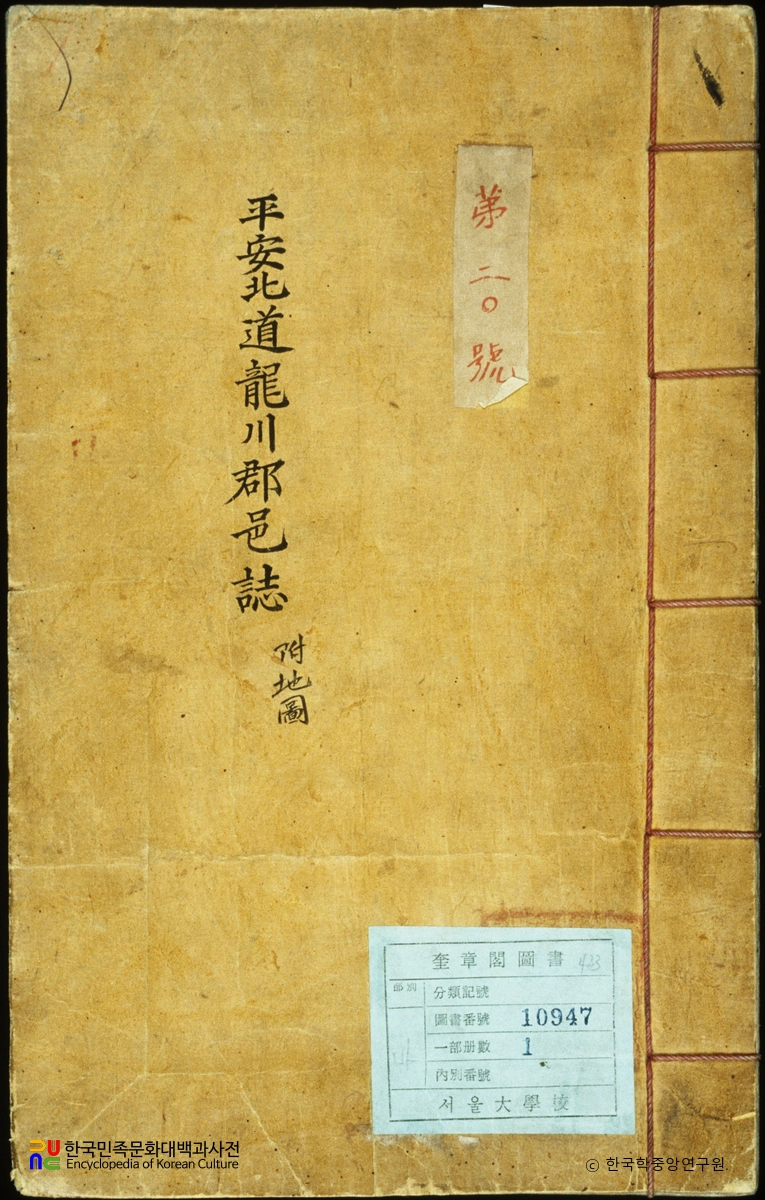 第二〇號
平安北道龍川郡邑誌
附地圖
奎章閣圖書
433
部別
分類記號
圖書番號 10947
一部册數 1
內別番號
서울大學校
한국민족문화대백과사전
Encyclopedia of Korean Culture
© 한국학중앙연구원